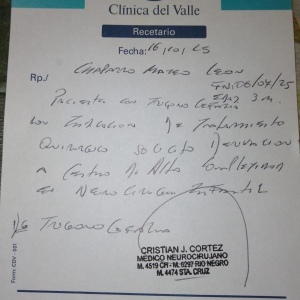 Clínica del Valle
Recetario
Fecha: 16/10/25
Rp./ CHAPARRO MATEO LEON
FN: 06/04/25
EDAD 3 M.
PACIENTE CON TRIGONOCEFALIA
CON INDICACION DE TRATAMIENTO
QUIRURGICO SOLICITO DERIVACION
A CENTRO DE ALTA COMPLEJIDAD
EN NEUROCIRUGIA INFANTIL
DG TRIGONOCEFALIA
CRISTIAN J. CORTEZ
MEDICO NEUROCIRUJANO
M. 4519 CH - M. 6297 RIO NEGRO
M. 4474 STA. CRUZ
Form: CDV - 001